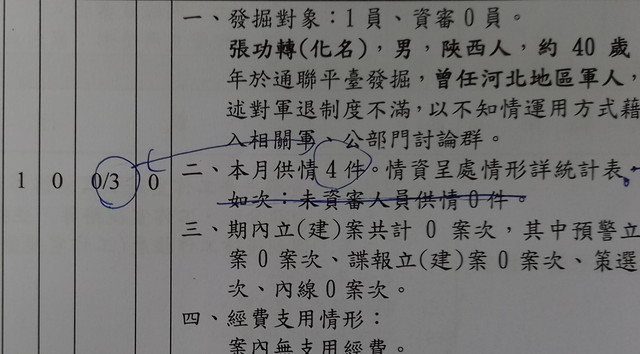 一、發掘對象：1員、資審0員。
張功轉(化名)，男，陝西人，約 40 歲
年於通聯平臺發掘，曾任河北地區軍人，
述對軍退制度不滿，以不知情運用方式藉
入相關軍、公部門討論群。
1 0 0/3 0
二、本月供情 4 件。情資呈處情形詳統計表。
如次：未資審人員供情 0 件。
三、期內立(建)案共計 0 案次，其中預警立
案 0 案次、諜報立(建)案 0 案次、策選
次、內線 0 案次。
四、經費支用情形：
案內無支用經費。